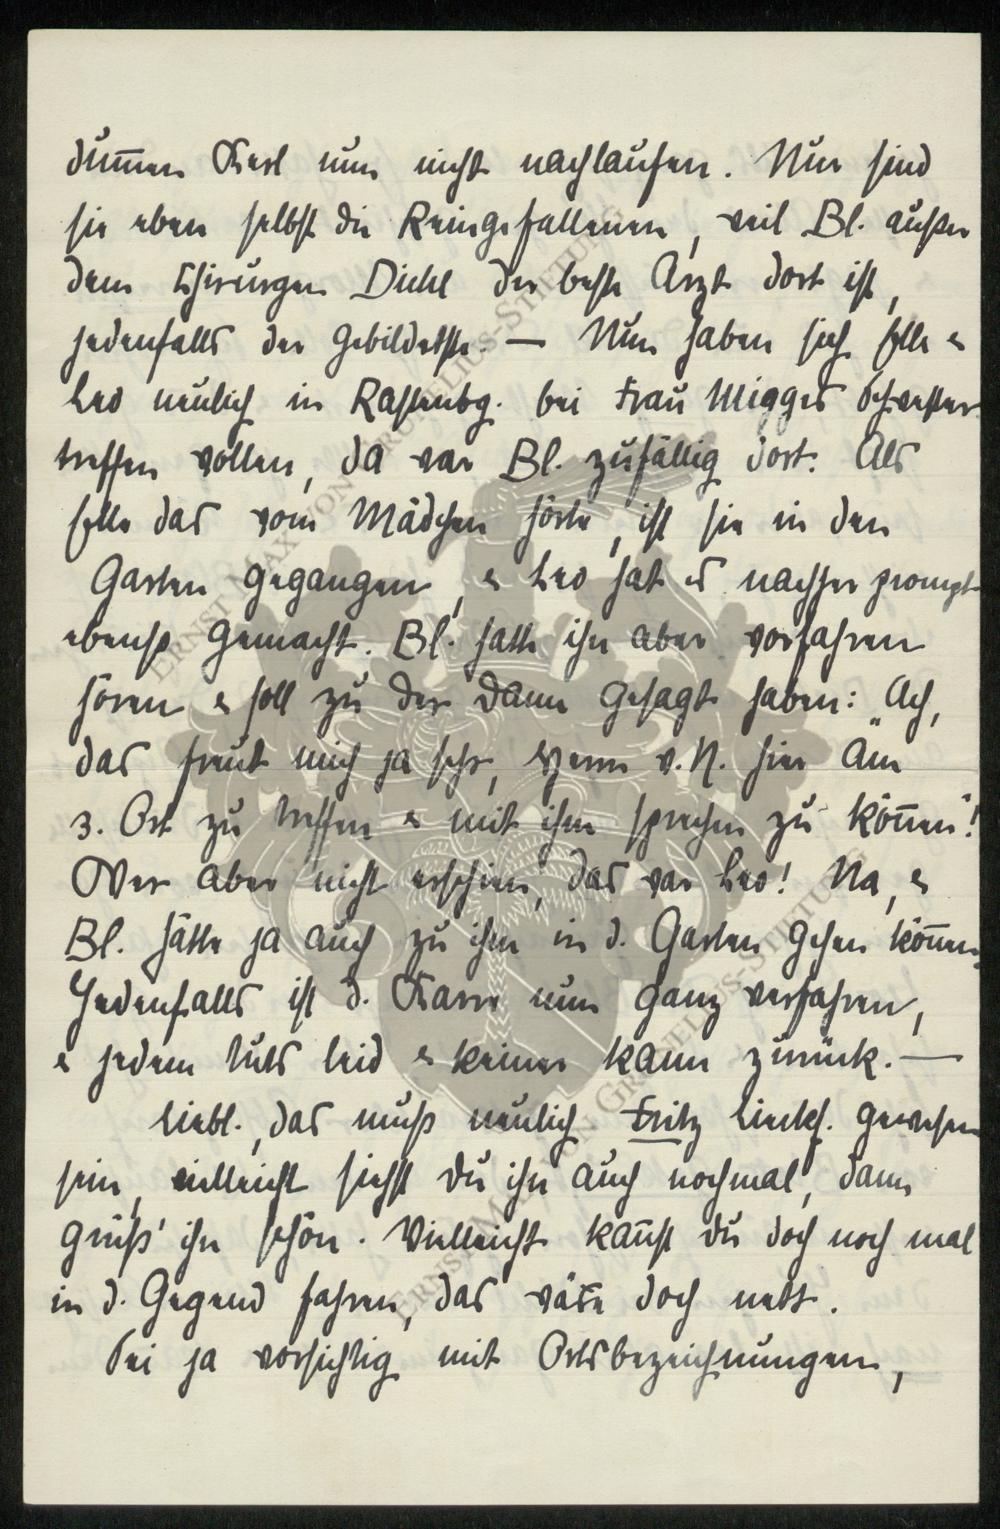 dummen Kerl nun nicht nachlaufen. Nun sind
sie eben selbst die Reingefallenen, weil Bl. außer
dem Chirurgen Diehl der beste Arzt dort ist,
jedenfalls der Gebildetste. — Nun haben sich Elle &
Leo neulich in Rastenbg. bei Frau Migges Schwester
treffen wollen, da war Bl. zufällig dort. Als
Elle das vom Mädchen hörte, ist sie in den
Garten gegangen, & Leo hat es nachher prompt
ebenso gemacht. Bl. hatte ihn aber vorfahren
hören & soll zu der Dame gesagt haben: „Ach,
das freut mich ja sehr, Herrn v. N. hier am
3. Ort zu treffen & mit ihm sprechen zu können"!
Wer aber nicht erschien, das war Leo! Na, &
Bl. hätte ja auch zu ihm in d. Garten gehen können.
Jedenfalls ist d. Karre nun ganz verfahren,
& jedem tuts leid & keiner kann zurück. —
Liebl., das muß neulich Fritz gewesen
sein, vielleicht siehst du ihn auch nochmal, dann
grüß' ihn schön. Vielleicht kannst du doch noch mal
in d. Gegend fahren, das wäre doch nett.
Sei ja vorsichtig mit Ortsbezeichnungen,
ERNST MAX VON GRUNELIUS-STIFTUNG